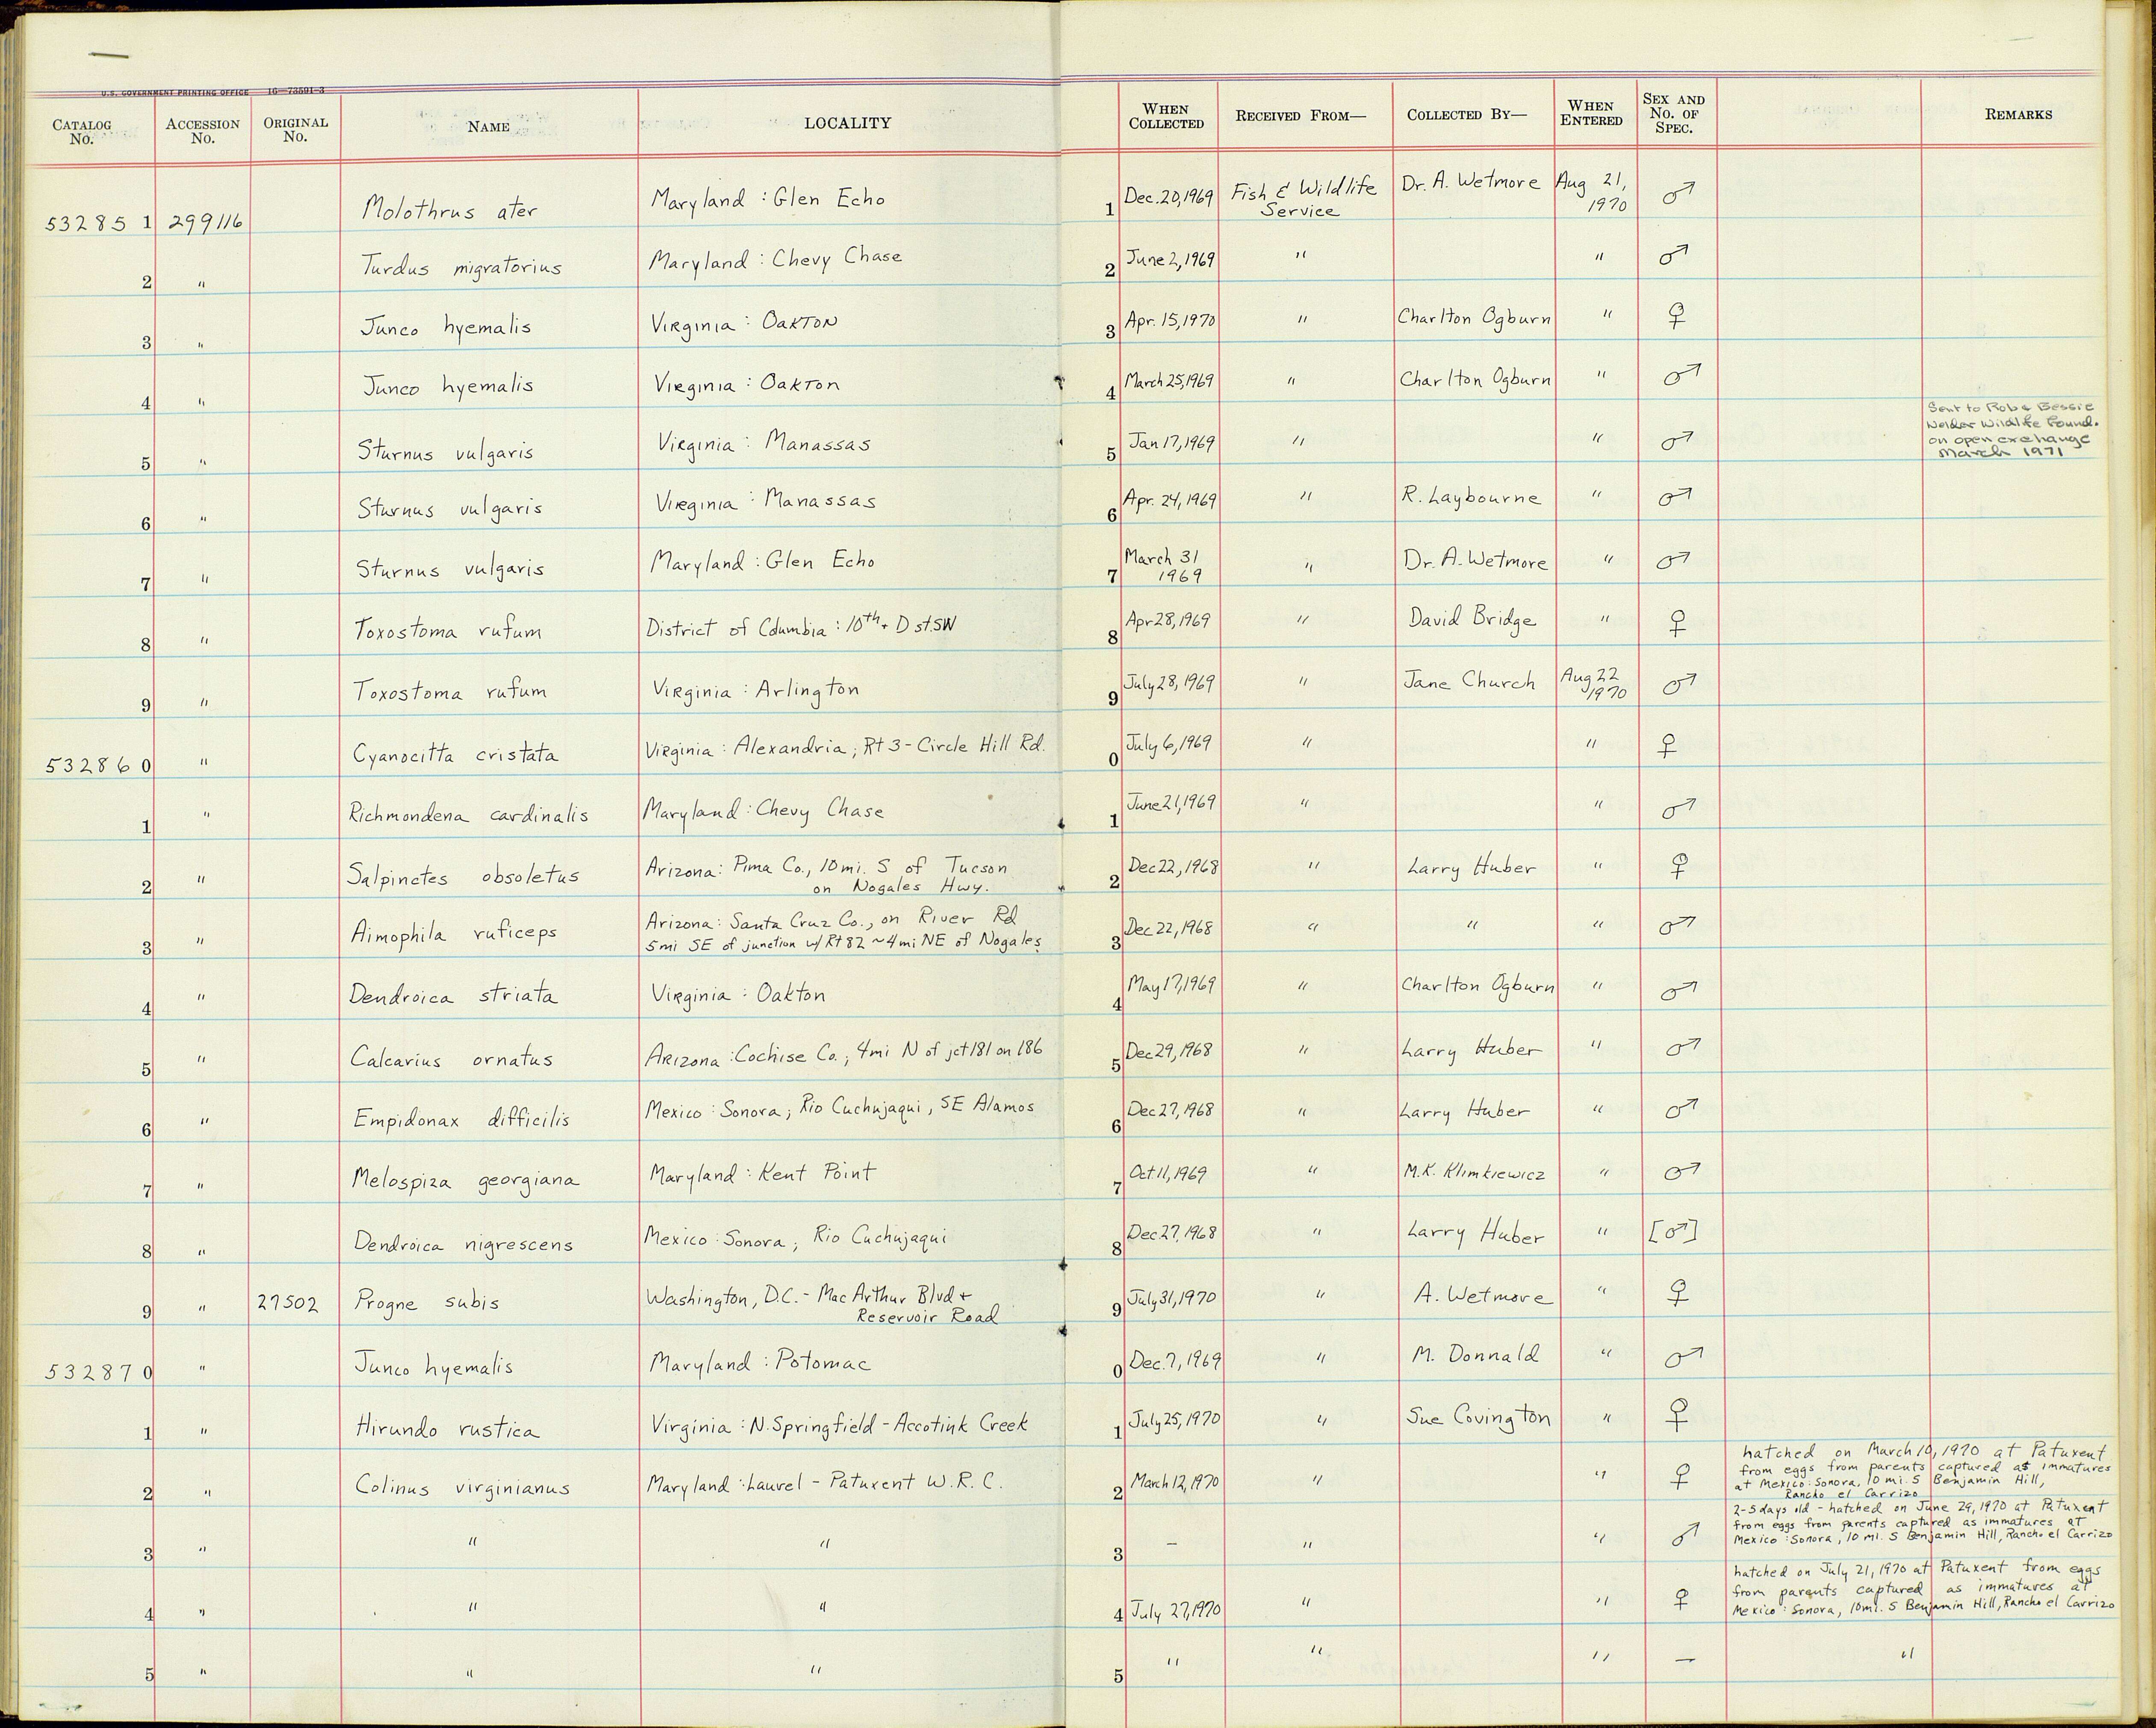 U.S. GOVERNMENT PRINTING OFFICE 16—73591-3
CATALOG No. ACCESSION No. ORIGINAL No. NAME LOCALITY WHEN COLLECTED RECEIVED FROM— COLLECTED BY— WHEN ENTERED SEX AND No. OF SPEC. REMARKS
53285 1 299116 Molothrus ater Maryland : Glen Echo 1 Dec. 20, 1969 Fish & Wildlife Service Dr. A. Wetmore Aug 21, 1970 ♂
2 " Turdus migratorius Maryland : Chevy Chase 2 June 2, 1969 " " ♂
3 " Junco hyemalis Virginia : Oakton 3 Apr. 15, 1970 " Charlton Ogburn " ♀
4 " Junco hyemalis Virginia : Oakton 4 March 25, 1969 " Charlton Ogburn " ♂
5 " Sturnus vulgaris Virginia : Manassas 5 Jan 17, 1969 " " ♂ Sent to Rob & Bessie Welder Wildlife Found. on open exchange March 1971
6 " Sturnus vulgaris Virginia : Manassas 6 Apr. 24, 1969 " R. Laybourne " ♂
7 " Sturnus vulgaris Maryland : Glen Echo 7 March 31 1969 " Dr. A. Wetmore " ♂
8 " Toxostoma rufum District of Columbia : 10th + D st. SW 8 Apr 28, 1969 " David Bridge " ♀
9 " Toxostoma rufum Virginia : Arlington 9 July 28, 1969 " Jane Church Aug 22 1970 ♂
53286 0 " Cyanocitta cristata Virginia : Alexandria ; Rt 3 - Circle Hill Rd. 0 July 6, 1969 " " ♀
1 " Richmondena cardinalis Maryland : Chevy Chase 1 June 21, 1969 " " ♂
2 " Salpinctes obsoletus Arizona : Pima Co., 10 mi. S of Tucson on Nogales Hwy. 2 Dec 22, 1968 " Larry Huber " ♀
3 " Aimophila ruficeps Arizona : Santa Cruz Co., on River Rd 5 mi SE of junction w/ Rt 82 ~ 4 mi NE of Nogales. 3 Dec 22, 1968 " " " ♂
4 " Dendroica striata Virginia : Oakton 4 May 17, 1969 " Charlton Ogburn " ♂
5 " Calcarius ornatus Arizona : Cochise Co. ; 4 mi N of jct 181 on 186 5 Dec 29, 1968 " Larry Huber " ♂
6 " Empidonax difficilis Mexico : Sonora ; Rio Cuchujaqui, SE Alamos 6 Dec 27, 1968 " Larry Huber " ♂
7 " Melospiza georgiana Maryland : Kent Point 7 Oct 11, 1969 " M.K. Klimkiewicz " ♂
8 " Dendroica nigrescens Mexico : Sonora ; Rio Cuchujaqui 8 Dec 27, 1968 " Larry Huber " [♂]
9 " 27502 Progne subis Washington, D.C. - MacArthur Blvd + Reservoir Road 9 July 31, 1970 " A. Wetmore " ♀
53287 0 " Junco hyemalis Maryland : Potomac 0 Dec. 7, 1969 " M. Donnald " ♂
1 " Hirundo rustica Virginia : N. Springfield - Accotink Creek 1 July 25, 1970 " Sue Covington " ♀
2 " Colinus virginianus Maryland : Laurel - Patuxent W.R.C. 2 March 12, 1970 " " ♀ hatched on March 10, 1970 at Patuxent from eggs from parents captured as immatures at Mexico : Sonora, 10 mi. S Benjamin Hill, Rancho el Carrizo
3 " " " 3 - " " ♂ 2-5 days old - hatched on June 29, 1970 at Patuxent from eggs from parents captured as immatures at Mexico : Sonora, 10 mi. S Benjamin Hill, Rancho el Carrizo
4 " " " 4 July 27, 1970 " " ♀ hatched on July 21, 1970 at Patuxent from eggs from parents captured as immatures at Mexico : Sonora, 10 mi. S Benjamin Hill, Rancho el Carrizo
5 " " " 5 " " " — "